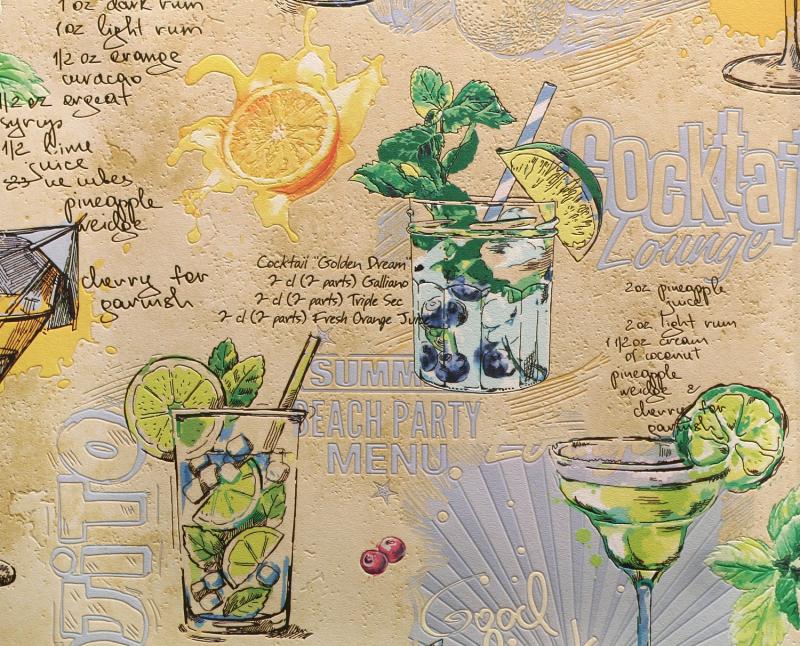 1 oz dark rum
1 oz light rum
1/2 oz orange
curacao
1/2 oz orgeat
syrup
1/2 lime
juice
ice cubes
pineapple
weidge
cherry for
garnish
Cocktail "Golden Dream"
2 cl (2 parts) Galliano
2 cl (2 parts) Triple Sec
2 cl (2 parts) Fresh Orange Jui
SUMM
BEACH PARTY
MENU
Cocktai
Lounge
2oz pineapple
juice
2oz light rum
1 1/2oz cream
of coconut
pineapple
weidge &
cherry for
garnish
OJITO
Good